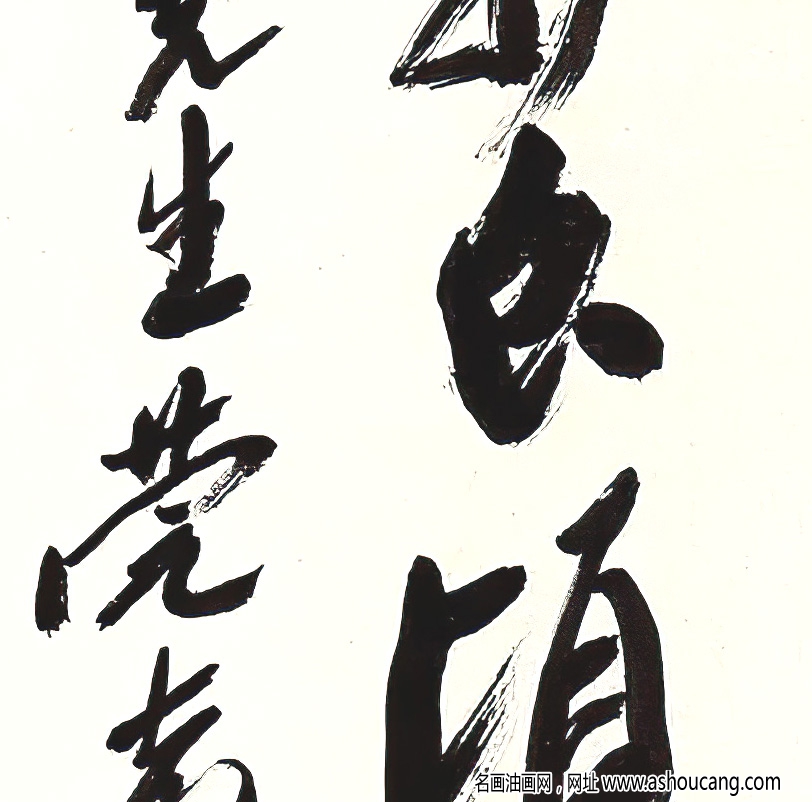 良頃
先生莞
名画油画网，网址 www.ashoucang.com